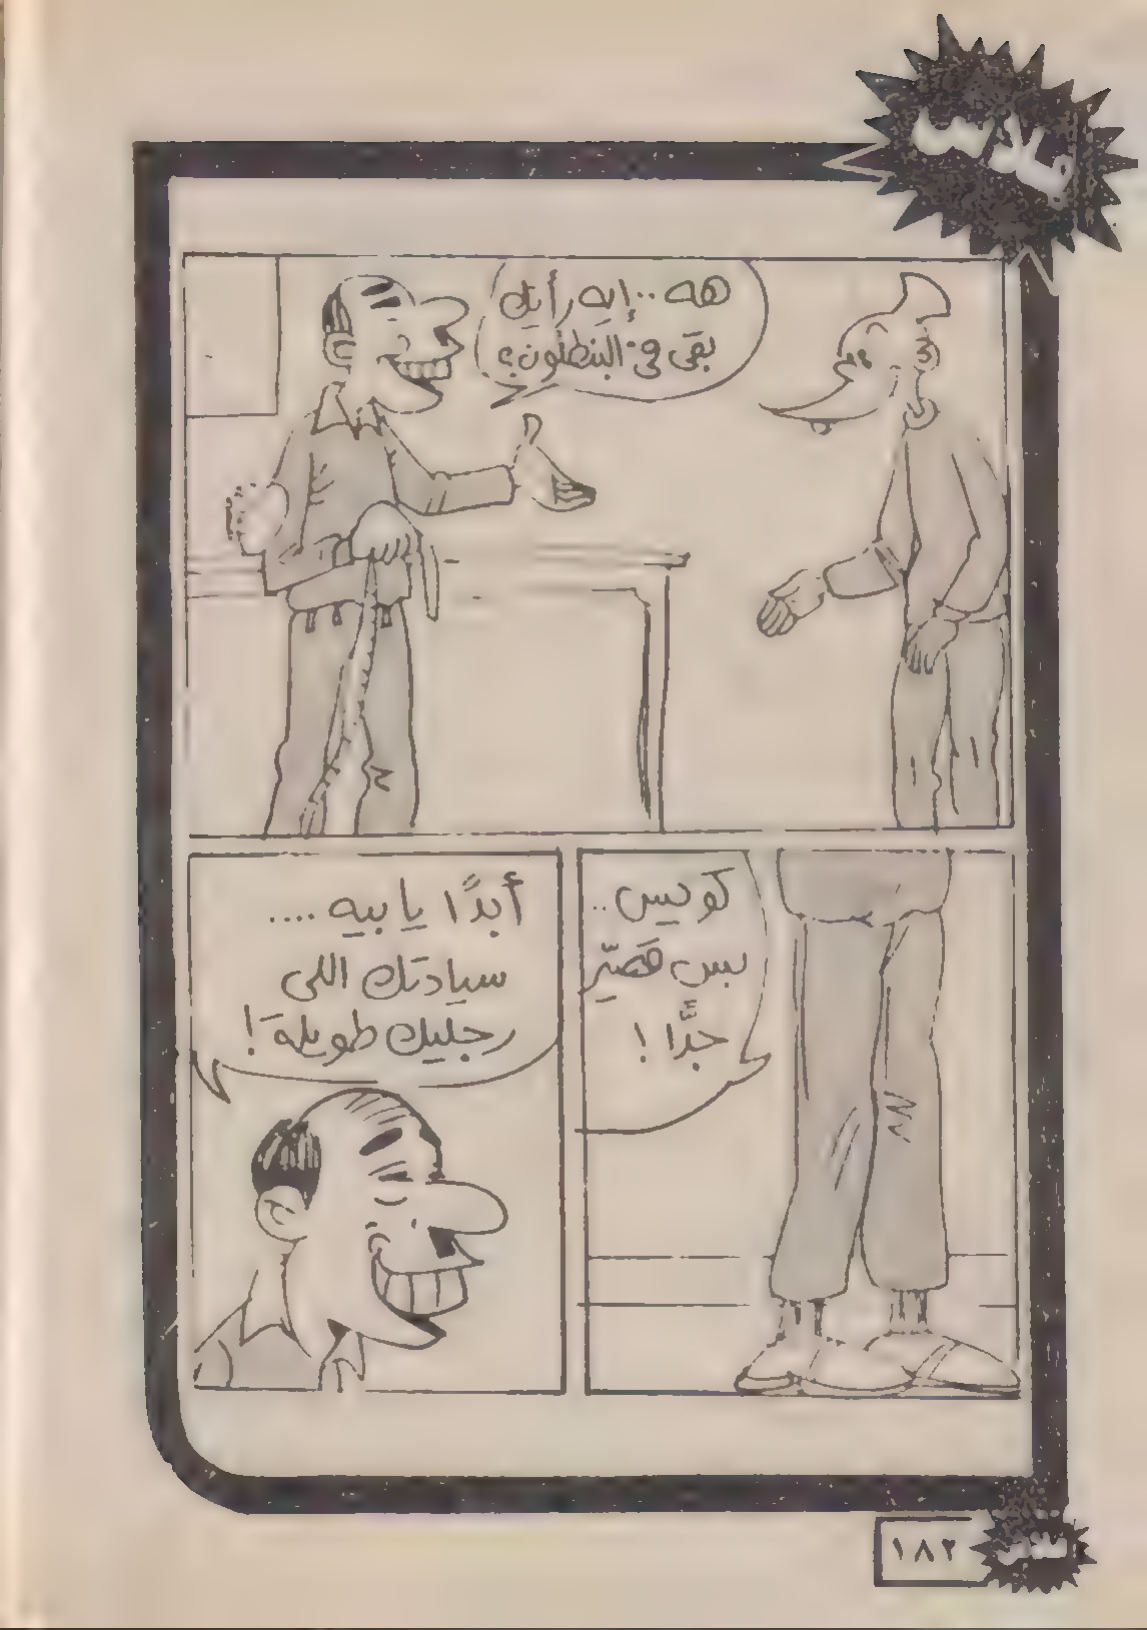 ملابس
هه ..إيه رأيك
بقى في البنطلون؟
كويس ..
بس قصيّر
جدًّا !
أبدًا يا بيه ....
سيادتك اللى
رجليك طويلة !
١٨٢